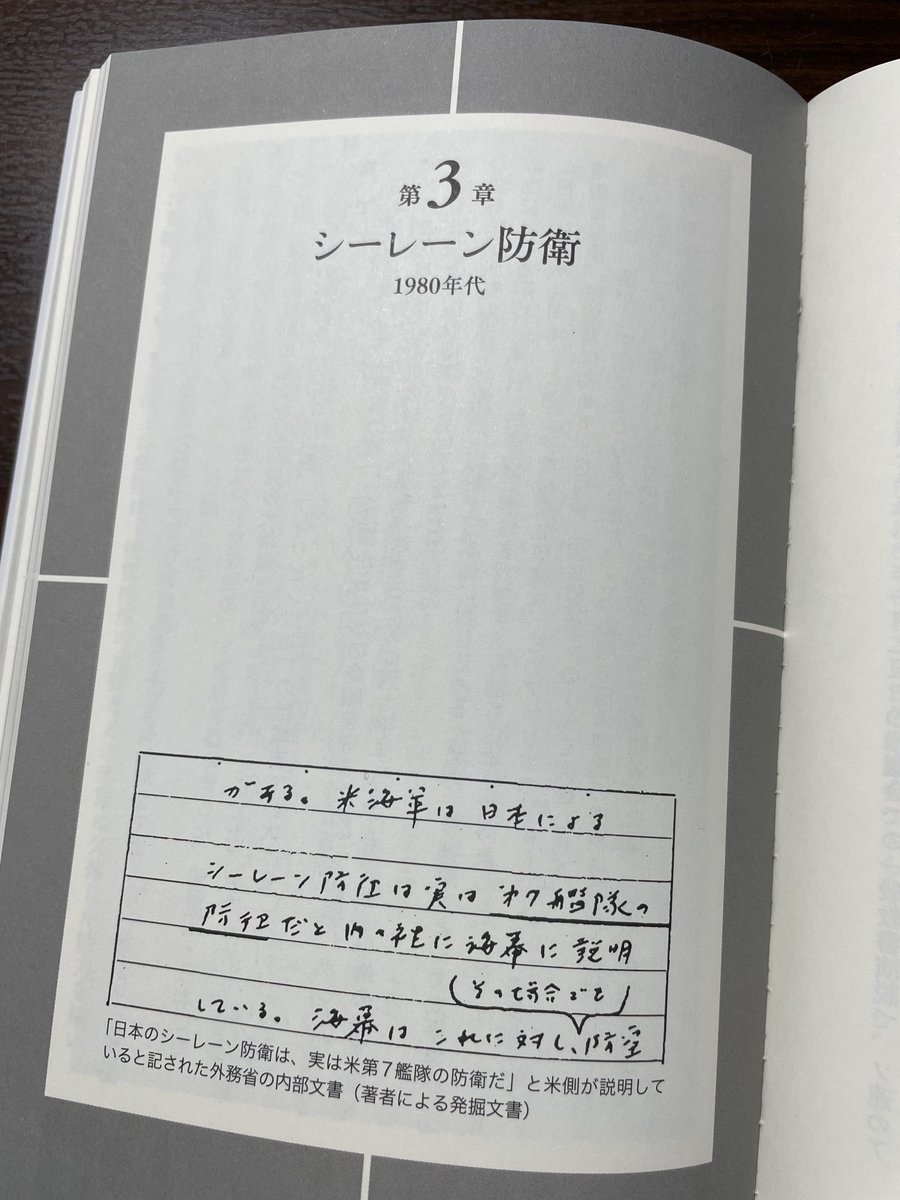 第3章
シーレーン防衛
1980年代
がある。米海軍は日本による
シーレーン防衛は実は才7艦隊の
防衛だと内々裡に海幕に説明
(その場合でも)
している。海幕はこれに対し、防空
「日本のシーレーン防衛は、実は米第7艦隊の防衛だ」と米側が説明して
いると記された外務省の内部文書（著者による発掘文書）